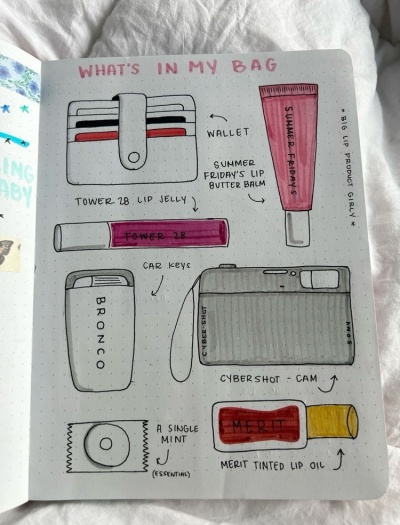 WHAT'S IN MY BAG
WALLET
SUMMER FRIDAYS
* BIG LIP PRODUCT GIRLY *
SUMMER
FRIDAY'S LIP
BUTTER BALM
TOWER 28 LIP JELLY
TOWER 28
CAR KEYS
BRONCO
CYBERSHOT
SONY
CYBERSHOT - CAM
MERIT
A SINGLE
MINT
(ESSENTIAL)
MERIT TINTED LIP OIL
ING
ABY